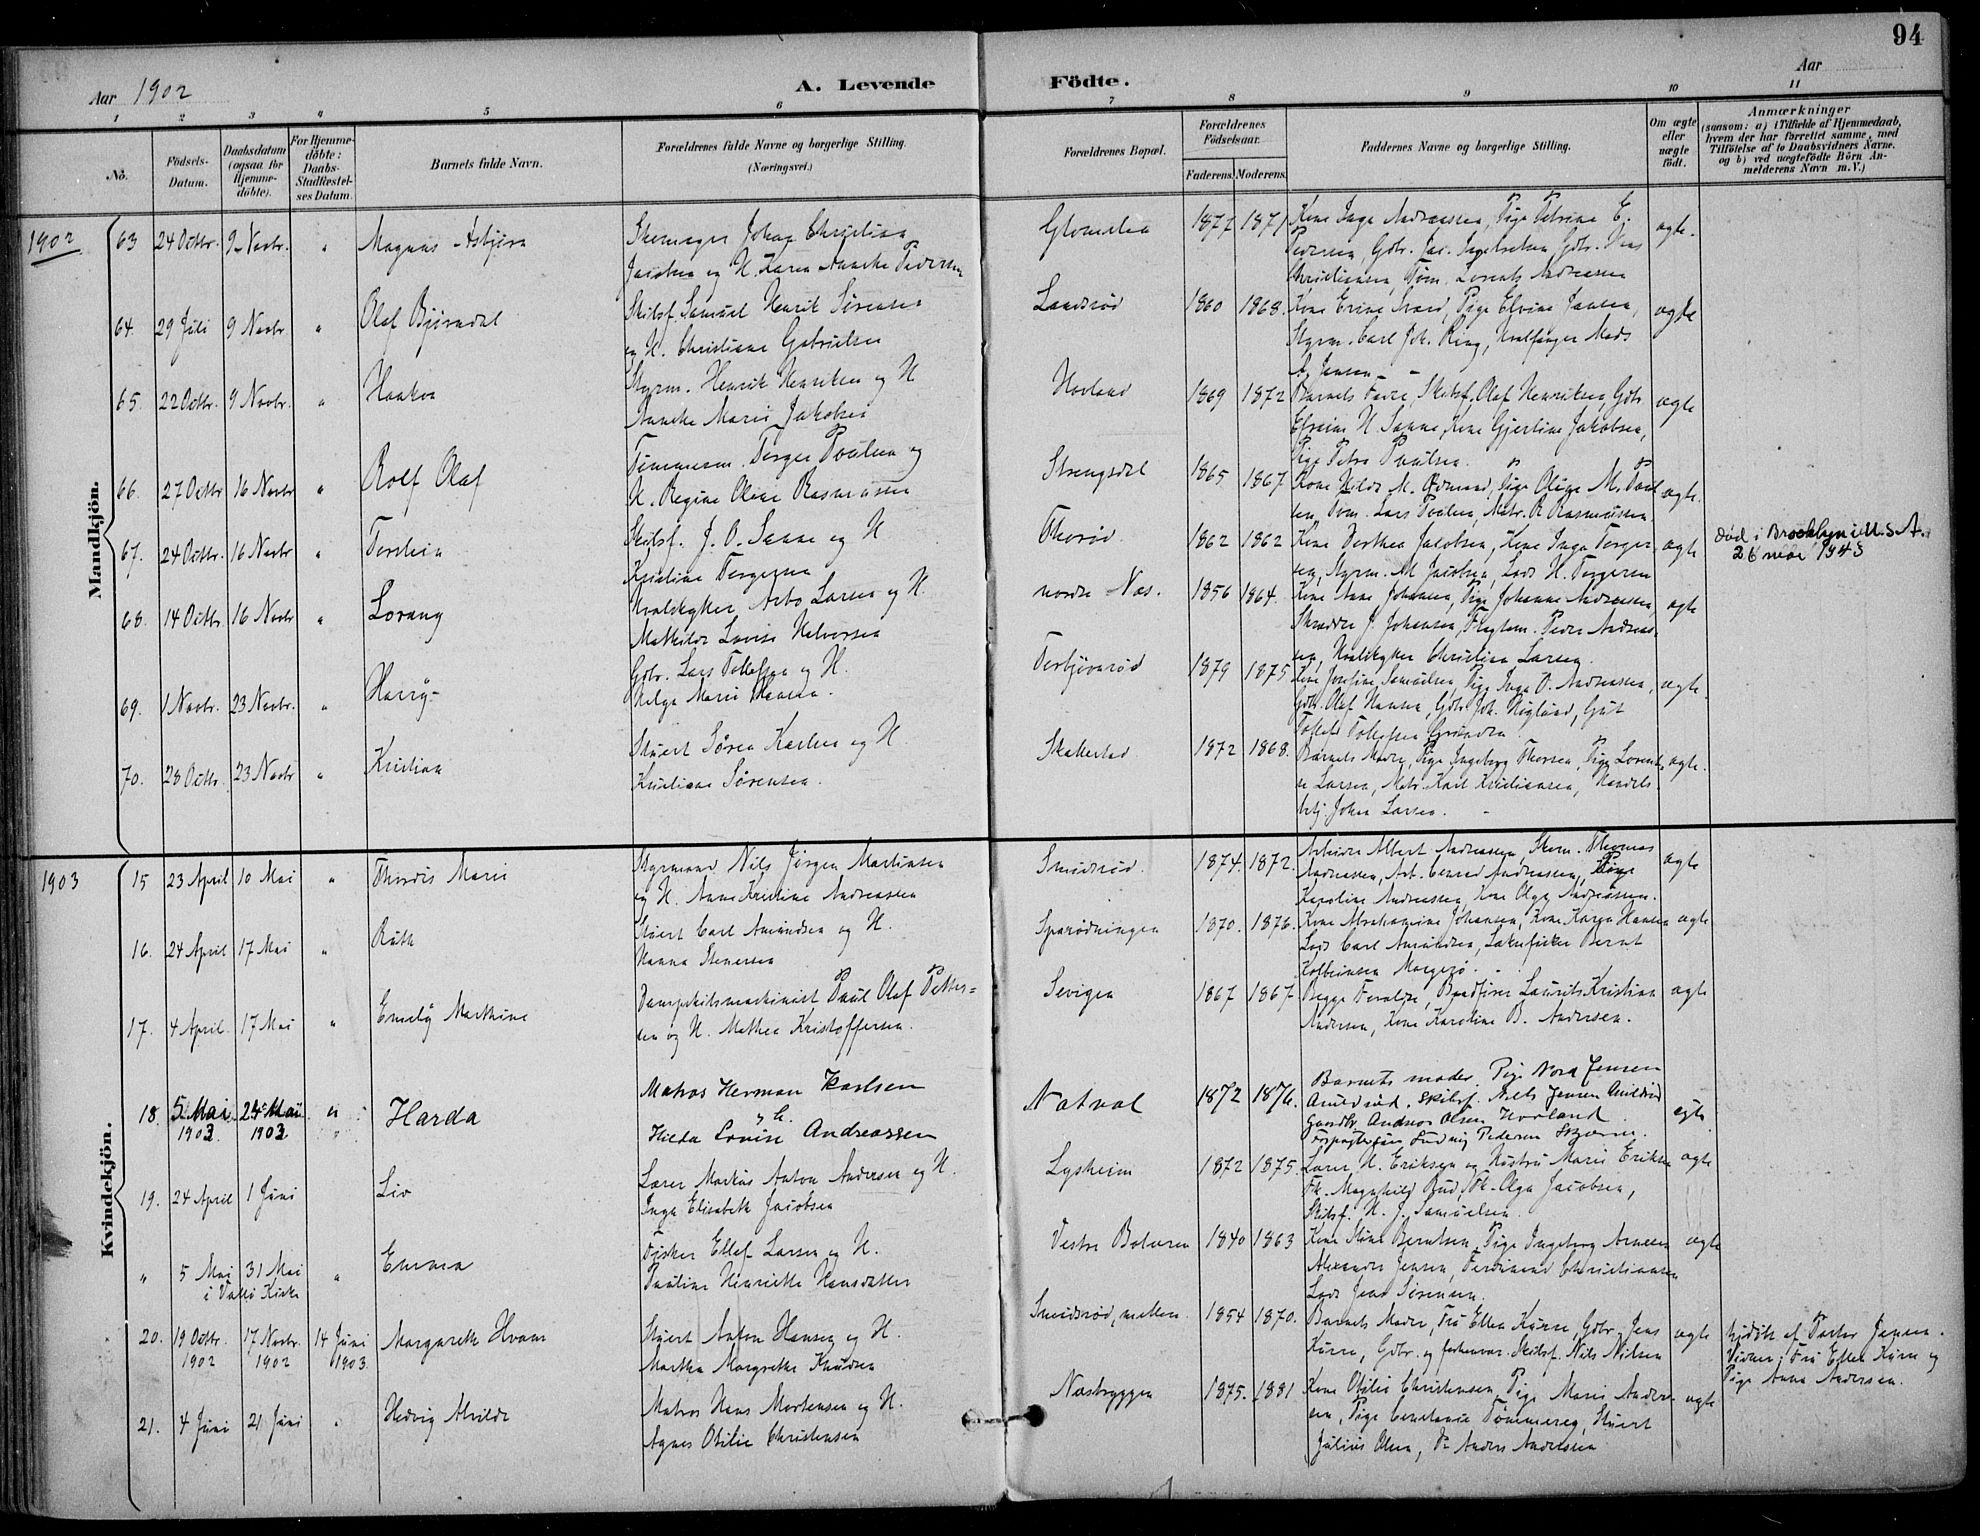 94
Aar 1902
A. Levende Födte.
Aar
1 2 3 4 5 6 7 8 9 10 11
No.
Födsels-Datum.
Daabsdatum (ogsaa for Hjemme-döbte).
For Hjemme-döbte: Daabs-Stadfæstel-ses Datum.
Barnets fulde Navn.
Forældrenes fulde Navne og borgerlige Stilling.
(Næringsvei.)
Forældrenes Bopæl.
Forældrenes Födselsaar.
Faderens. Moderens.
Faddernes Navne og borgerlige Stilling.
Om ægte eller uægte födt.
Anmærkninger
(saasom: a) i Tilfælde af Hjemmedaab, hvem der har forrettet samme, med Tilföielse af to Daabsvidners Navne, og b) ved uægtefödte Börn An-melderens Navn m.V.)
Mandkjön.
1902 63 24 Octbr. 9 Novbr. " Magnus Asbjørn
Skomager Johan Christian
Jacobsen og H. Karen Annette Pedersen
Glomstea 1877 1871
Kone Inga Andreassen, Pige Petrine E.
Pedersen, Gbr. Jac. Ingebretsen, Gbr. Hans
Christiansen, Tøm. Lorents Andreassen
ægte.
64. 29 Juli 9 Novbr " Olaf Bjørndal
Skibsf. Samuel Henrik Sørensen
og H. Christiane Gabrielsen
Sandsrød 1860 1868.
Kone Erine Svard, Pige Elvine Jansen,
Styrm. Carl Joh. Ring, Hvalfanger Mads
A. Jensen
ægte
65. 22 Octbr. 9 Novbr. " Haakon
Styrm. Henrik Henriksen og H
Annette Marie Jakobsen
Hovland 1869 1872
Barnets Fader, Skibsf. Olaf Henriksen, Gbr.
Efraim H. Sanne, Kone Gjertine Jakobsen,
Pige Petra Paulsen.
ægte
66. 27 Octbr 16 Novbr " Rolf Olaf
Tømmerm. Torger Poulsen og
H. Regine Oline Rasmussen
Strengsdal 1865 1867
Kone Hilda M. Ødmund, Pige Oline M. Poul
sen, Tøm. Lars Poulsen, Matr. R. Rasmussen
ægte.
67. 24 Octbr 16 Novbr " Torstein
Skibsf. J. O. Sanne og H
Kristine Torgersen
Thorød 1862 1862
Kone Dorthea Jacobsen, Kone Inga Torger
sen, Styrm. M. Jacobsen, Lods H. Torgersen
ægte
død i Brooklyn i U.S.A.
26 mai 1945
68. 14 Octbr 16 Novbr " Lorang
Hvalskytter Arbo Larsen og H.
Mathilde Lovise Halvorsen
nordre Næs. 1856 1864.
Kone Anne Johansen, Pige Johanne Andreassen,
Skrædder J. Johansen, Fragtem. Peder Andreas
sen, Hvalskytter Christian Larsen.
ægte
69. 1 Novbr. 23 Novbr. " Harry
Gbr. Lars Tollefsen og H.
Helga Marie Hansen.
Torbjørnrød 1879 1875
Kone Josefine Samuelsen, Pige Inga O. Andreassen,
Gbr. Olaf Hansen, Gbr. Joh. Høglund, Gut
Tollef Tollefsen Grinden.
ægte.
70. 28 Octbr. 23 Novbr " Kristian
Stuert Søren Karlsen og H
Kristiane Sørensen.
Skallestad 1872 1868.
Barnets Moder, Pige Ingeborg Thorsen, Pige Lorent
se Larsen, Matr. Karl Kristiansen, Handels
betj. Johan Larsen.
ægte.
Kvindekjön.
1903 15 23 April 10 Mai " Thordis Marie
Styrmand Nils Jørgen Martinsen
og H. Anne Kristine Andreassen
Smidsrød. 1874. 1872.
Arbeider Albert Andreassen, Skom. Thomas
Andreassen, Arb. Conrad Andreassen, Pige
Karoline Andreassen, Kone Olga Andreassen.
ægte
16. 24 April 17 Mai " Ruth
Stuert Carl Amundsen og H.
Hanna Stenersen
Sparødningen 1870. 1876.
Kone Abrahamine Johansen, Kone Karen Hansen
Lods Carl Amundsen, Laxefisker Bernt
Kolbeinsen Mægerø.
ægte
17. 4 April. 17 Mai " Emely Marthine
Dampskibsmaskinist Paul Olaf Petter-
sen og H. Mathea Kristoffersen.
Sevigen 1867 1867
Begge Forældre, Baadfører Laurits Kristian
Andersen, Kone Karoline B. Andersen.
ægte
18. 5 Mai 1903 24 Mai 1903 " Harda
Matros Herman Karlsen
og H.
Hilda Louise Andreassen
Natval 1872 1876.
Barnets moder. Pige Nora Jensen
Arildsrød. Skibsf. Nils Jensen Arildsrød
Gaardbr. Andreas Olsen Hovland
Forpagter Ludvig Pedersen Skjærsn.
egte
19. 24 April 1 Juni Liv
Lærer Markus Anton Andersen og H.
Inga Elisabeth Jacobsen
Lysheim 1872 1875.
Lærer H. Eriksen og Hustru Marie Eriksen
Frk. Magnhild Bud, Frk. Olga Jacobsen,
Skibsf. H. J. Samuelsen.
ægte
" 5 Mai 31 Mai " Emma
i Vallø Kirke
Fisker Ellef Larsen og H.
Pauline Henriette Hansdatter
Vestre Bolæren 1840 1863
Kone Stine Berntsen, Pige Ingeborg Arnesen
Alexander Jensen, Ferdinand Christiansen
Lods Jens Sørensen.
ægte
20. 19 Octbr. 1902 17 Novbr. 1902 14 Juni 1903 Margareth Hvam
Stuert Anton Hansen og H.
Martha Margrethe Knudsen
Smidsrød, mellem 1854 1870.
Barnets Moder, Fru Ellen Kurre, Gbr. Jens
Kurre, Gbr. og forhenvær. Skibsf. Nils Nilsen
ægte
hjdøbt af Pastor Jansen.
Vidner: Fru Ellen Kurre og
Pige Anna Andersen.
21. 4 Juni 21 Juni " Hedvig Alvilde
Matros Hans Mortensen og H.
Agnes Otilie Christensen
Næsbryggen 1875. 1881
Kone Otilie Christensen, Pige Marie Ander-
sen, Pige Constance Tømmereg, Stuert
Julius Olsen, Anders Andersen
ægte